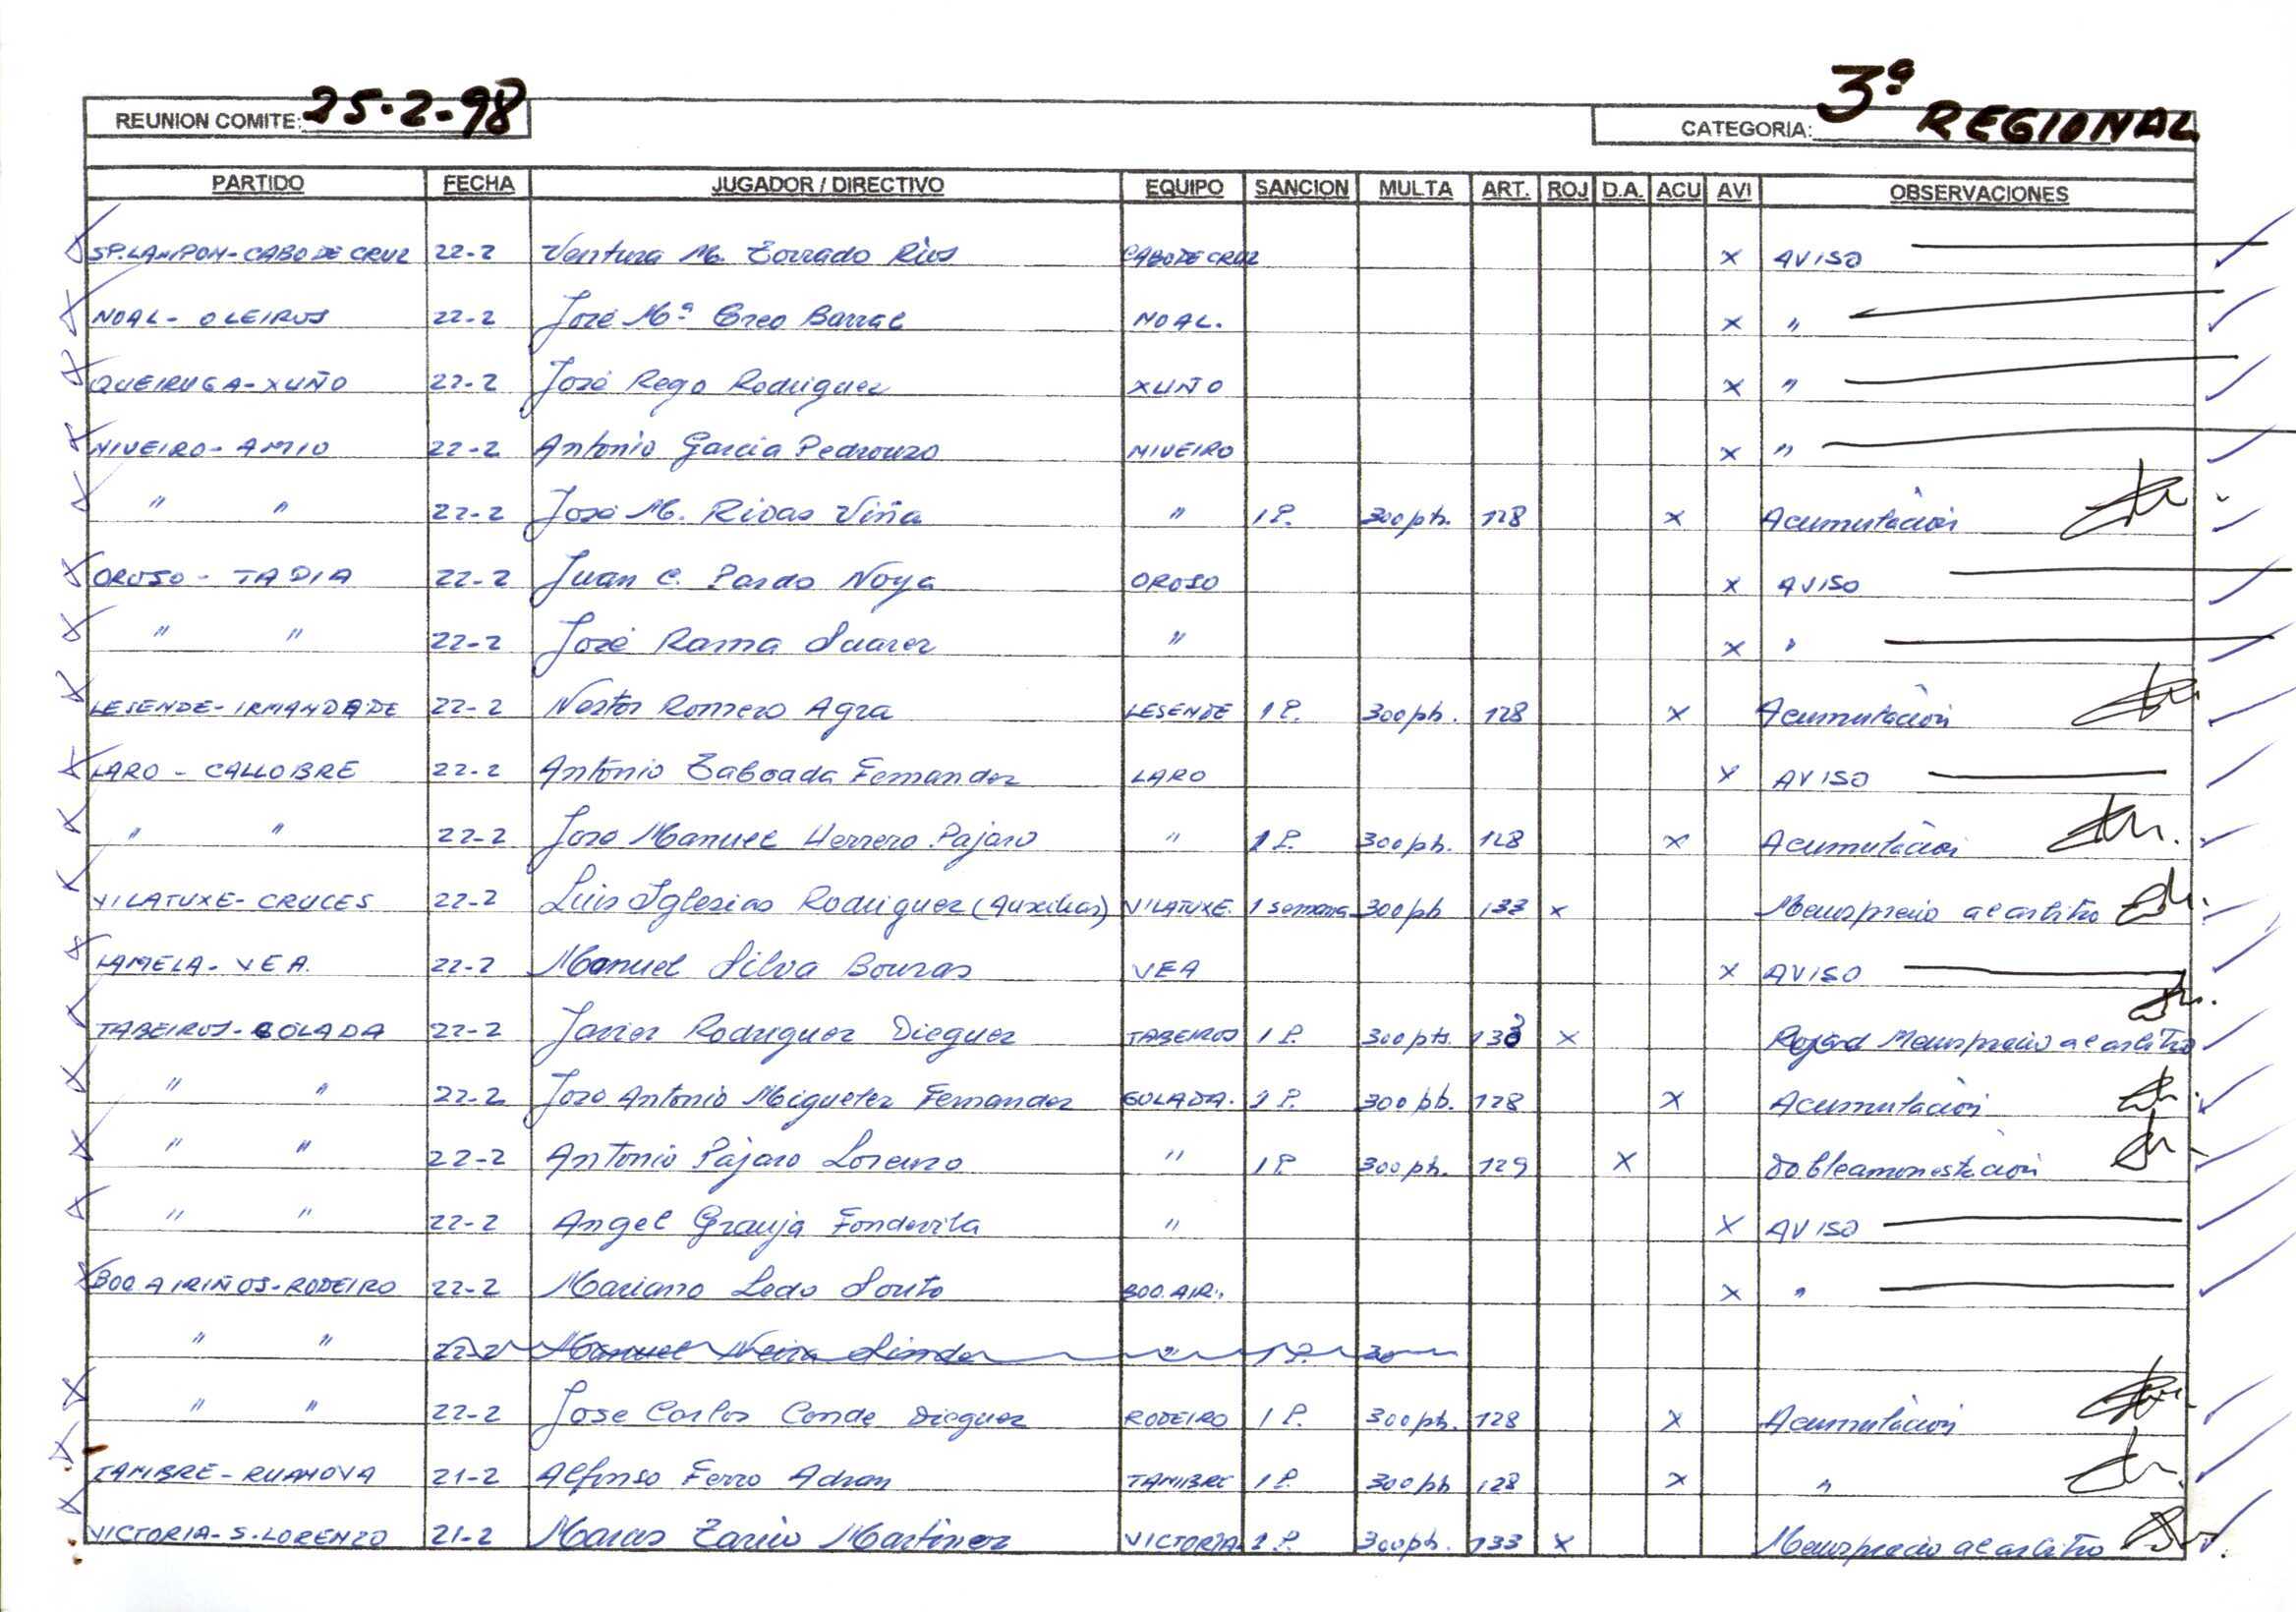 REUNION COMITE: 25-2-98
CATEGORIA: 3ª REGIONAL
PARTIDO FECHA JUGADOR / DIRECTIVO EQUIPO SANCION MULTA ART. ROJ D.A. ACU AVI OBSERVACIONES
SP. LAMPON - CABO DE CRUZ 22-2 Ventura M. Torrado Rios CABO DE CRUZ x AVISO
NOAL - OLEIROS 22-2 José Mª Creo Barral NOAL. x "
QUEIRUGA - XUÑO 22-2 José Rego Rodriguez XUÑO x "
NIVEIRO - AMIO 22-2 Antonio Garcia Pedrouzo NIVEIRO x "
" " 22-2 José M. Rivas Viña " 1 P. 300 pts. 128 x Acumulación
OROSO - TAPIA 22-2 Juan C. Pardo Noya OROSO x AVISO
" " 22-2 José Rama Suarez " x "
LESENDE - IRMANDADE 22-2 Nestor Romero Agra LESENDE 1 P. 300 pts. 128 x Acumulación
LARO - CALLOBRE 22-2 Antonio Taboada Fernandez LARO x AVISO
" " 22-2 Jose Manuel Herrero Pajaro " 1 P. 300 pts. 128 x Acumulación
VILATUXE - CRUCES 22-2 Luis Iglesias Rodriguez (Auxiliar) VILATUXE. 1 semana 300 pts 133 x Menosprecio al arbitro
LAMELA - VEA. 22-2 Manuel Silva Bouzas VEA x AVISO
TABEIROS - GOLADA 22-2 Javier Rodriguez Dieguez TABEIROS 1 P. 300 pts. 133 x Menosprecio al arbitro
" " 22-2 Jose Antonio Miguelez Fernandez GOLADA. 1 P. 300 pts. 128 x Acumulación
" " 22-2 Antonio Pajaro Lorenzo " 1 P. 300 pts. 129 x Doble amonestación
" " 22-2 Angel Granja Fondevila " x AVISO
BOO. AIRIÑOS - RODEIRO 22-2 Mariano Ledo Souto BOO. AIR. x "
" " 22-2 Manuel Neira " 1 P. 30
" " 22-2 Jose Carlos Conde Dieguez RODEIRO 1 P. 300 pts. 128 x Acumulación
TAMBRE - RUANOVA 21-2 Alfonso Ferro Adran TAMBRE 1 P. 300 pts 128 x "
VICTORIA - S. LORENZO 21-2 Marcos Martinez VICTORIA 1 P. 300 pts. 133 x Menosprecio al arbitro